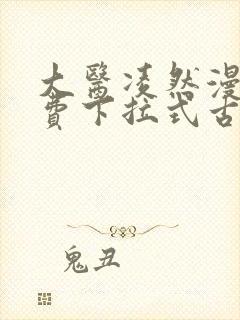 大醫凌然漫
費下拉式古
鬼丑